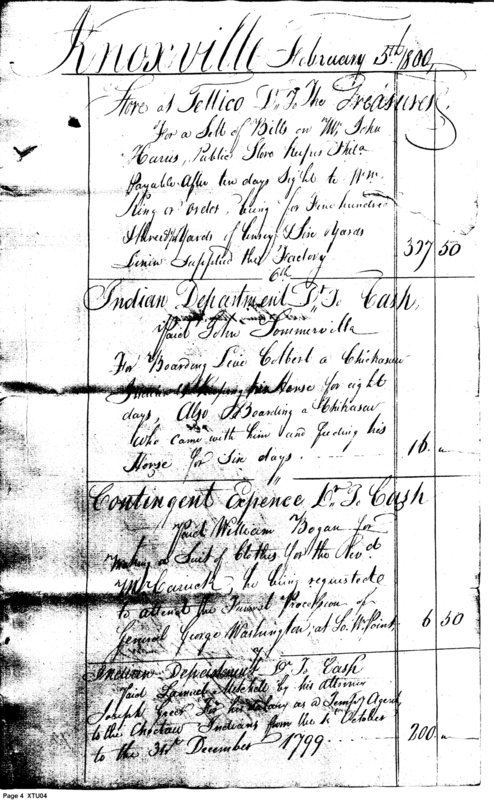 Knoxville February 5th 1800,
Store at Tellico Dr. To The Treasurer,
For a Sett of Bills on Mr. John
Harris, Public Store Keeper Phila
Payable After ten days Sight to Wm.
King or order, being for Five hundred
yards of Linsey & Six Yards
Linin Supplied the Factory 327 50
6th
Indian Department Dr. To Cash,
Paid John Sommerville
For Boarding Colbert a Chickasaw
Indian & Keeping his Horse for eight
days, Also Boarding a Chikasaw
who came with him and feeding his
Horse for Six days. 16. "
Contingent Expence Dr. To Cash
Paid William Bogan for
Making a Suit of Clothes for the Revd.
Mr. Carrick he being requested
to attend the Funeral Procession of
General George Washington, at So. W. Point 6 50
7
Indian Department Dr. To Cash
Paid Samuel Mitchell by his attorney
Joseph Greer For his Salary as a Tempy Agent
to the Choctaw Indians from the 1t October
to the 31st December 1799. 200. "
Page 4 XTU04